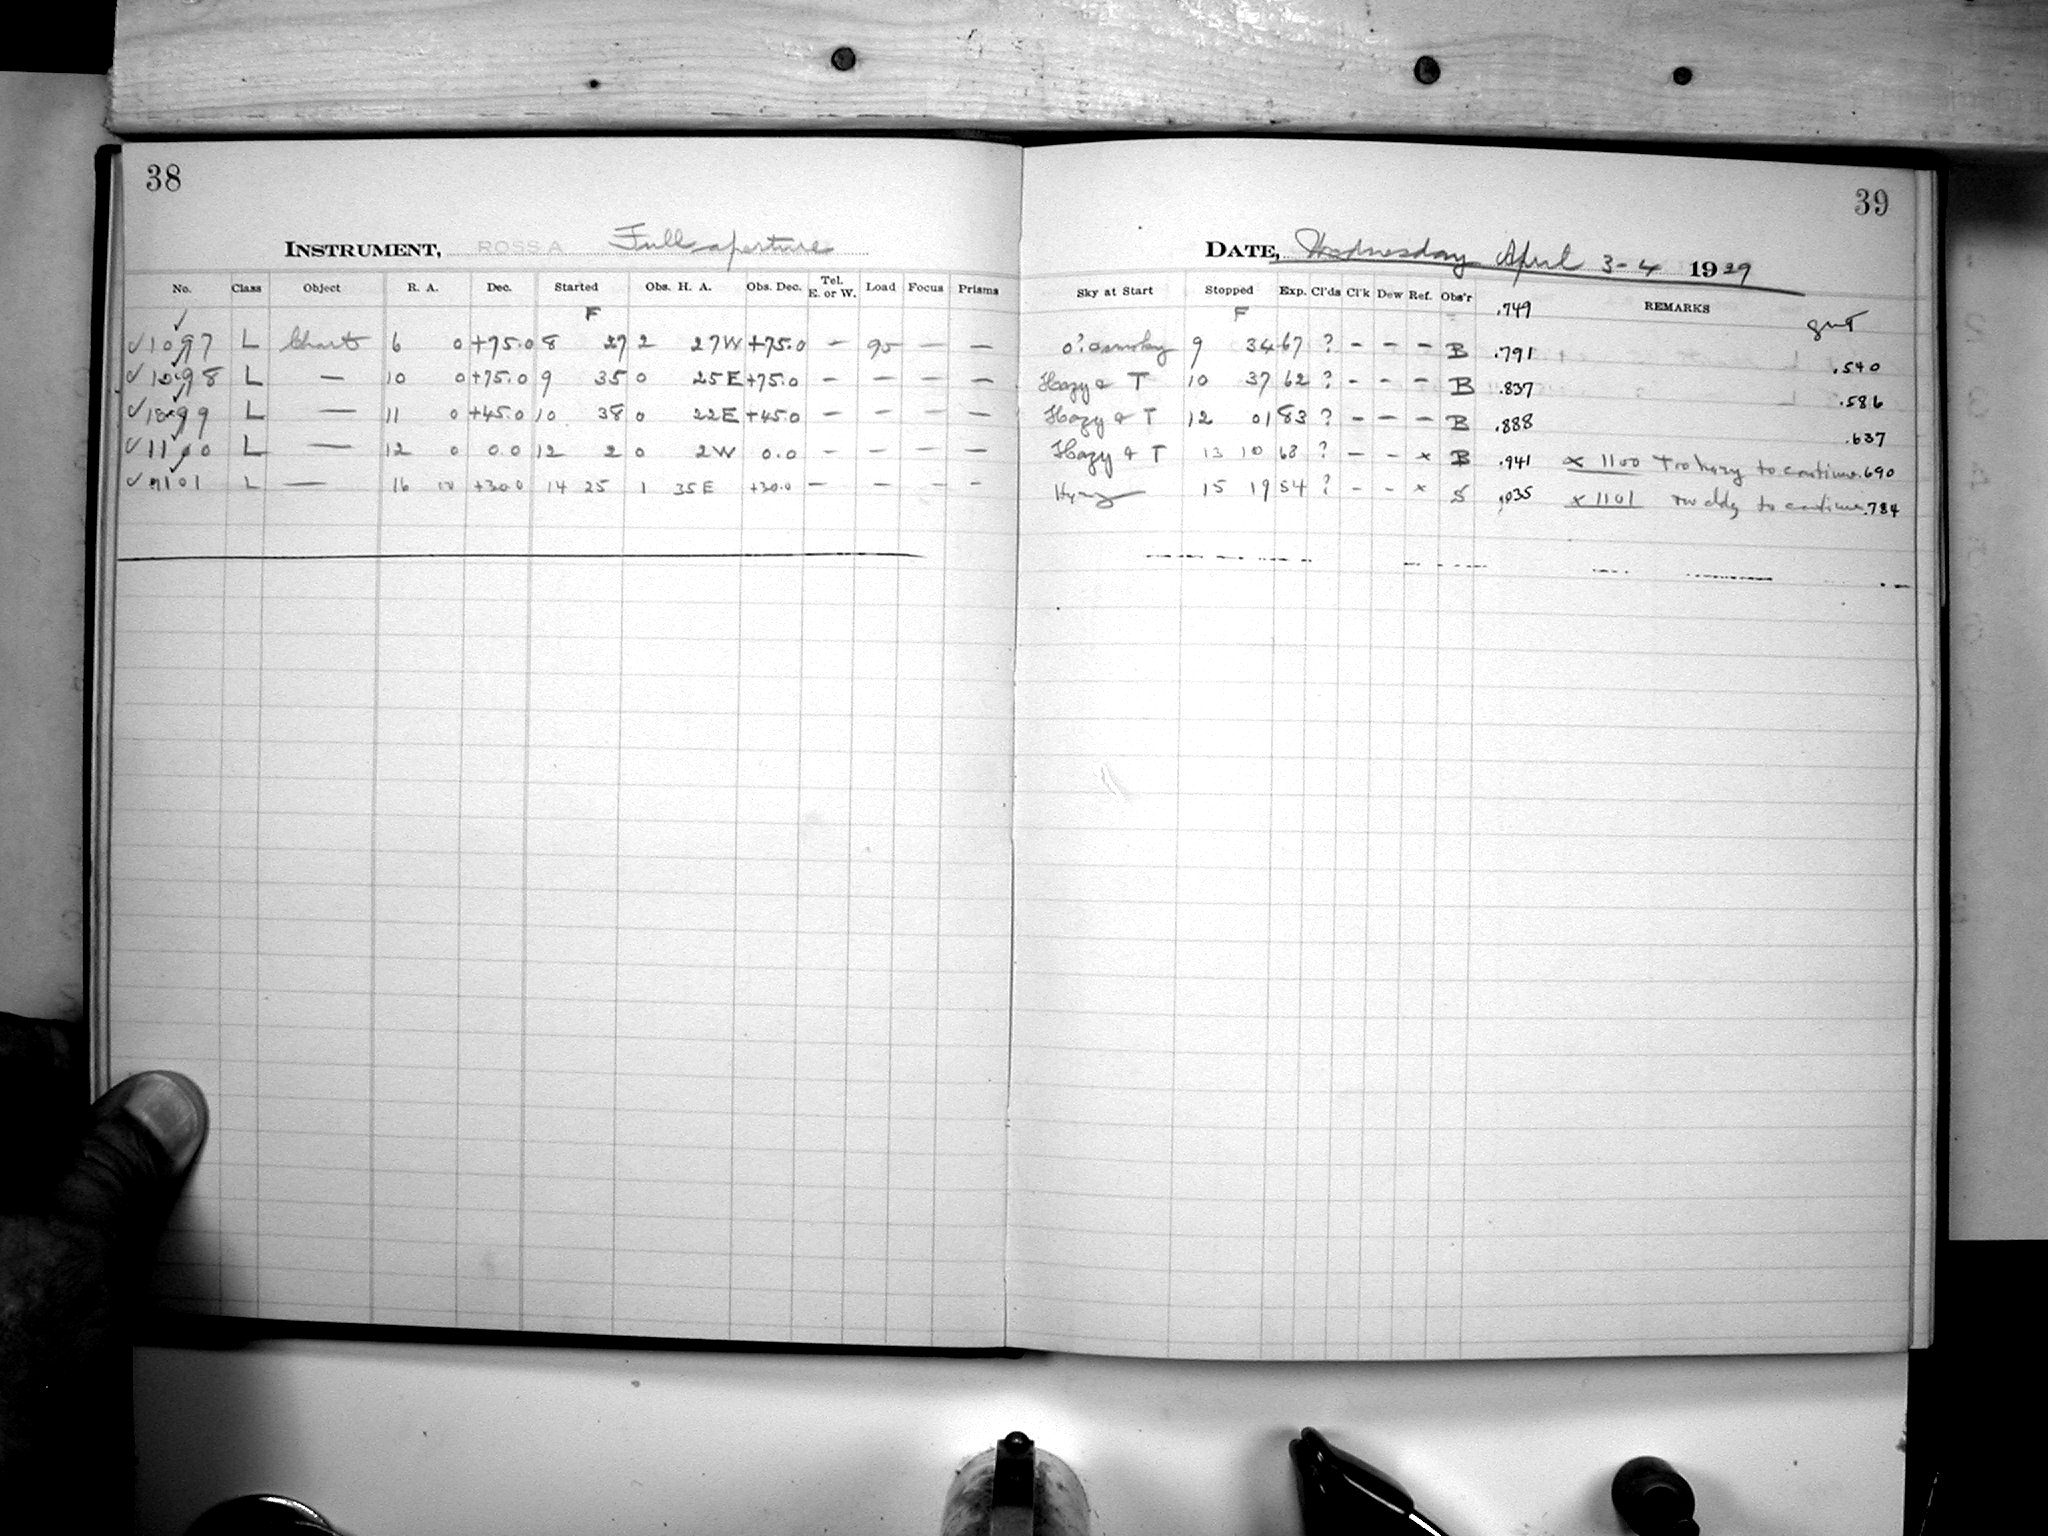 38
INSTRUMENT, ROSS A Full aperture
No. Class Object R. A. Dec. Started Obs. H. A. Obs. Dec. Tel. E. or W. Load Focus Prisms
F
✓1097 L Chart 6 0 +75.0 8 27 2 27W +75.0 — 90 — —
✓1098 L — 10 0 +75.0 9 35 0 25E +75.0 — — — —
✓1099 L — 11 0 +45.0 10 38 0 22E +45.0 — — — —
✓1100 L — 12 0 0.0 12 2 0 2W 0.0 — — — —
✓1101 L — 16 10 +30.0 14 25 1 35E +30.0 — — — —
39
DATE, Wednesday April 3-4 1929
Sky at Start Stopped Exp. Cl'ds Cl'k Dew Ref. Obs'r REMARKS
F .749 gmT
9 34 67 ? — — — B .791 .540
Hazy & T 10 37 62 ? — — — B .837 .586
Hazy & T 12 01 83 ? — — — B .888 .637
Hazy & T 13 10 68 ? — — × B .941 × 1100 Too hazy to continue .690
15 19 54 ? — — × S .035 × 1101 to continue .784